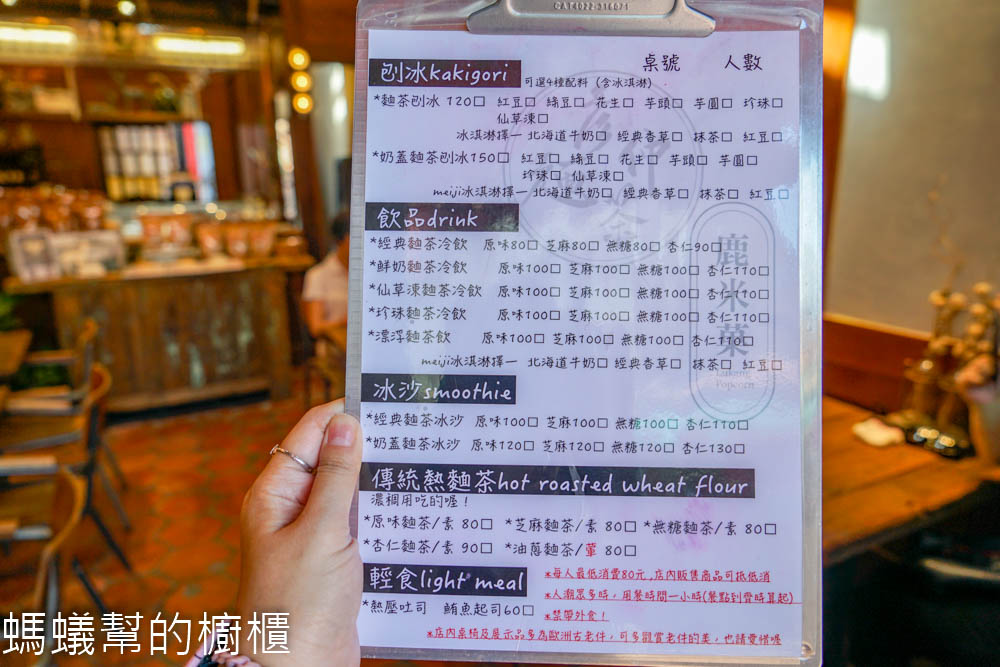 CAT4022-316071
桌號 人數
刨冰kakigori 可選4種配料 (含冰淇淋)
*麵茶刨冰 120□ 紅豆□ 綠豆□ 花生□ 芋頭□ 芋圓□ 珍珠□
仙草凍□
冰淇淋擇一 北海道牛奶□ 經典香草□ 抹茶□ 紅豆□
*奶蓋麵茶刨冰150□ 紅豆□ 綠豆□ 花生□ 芋頭□ 芋圓□
珍珠□ 仙草凍□
meiji冰淇淋擇一 北海道牛奶□ 經典香草□ 抹茶□ 紅豆□
飲品drink
*經典麵茶冷飲 原味80□ 芝麻80□ 無糖80□ 杏仁90□
*鮮奶麵茶冷飲 原味100□ 芝麻100□ 無糖100□ 杏仁110□
*仙草凍麵茶冷飲 原味100□ 芝麻100□ 無糖100□ 杏仁110□
*珍珠麵茶冷飲 原味100□ 芝麻100□ 無糖100□ 杏仁110□
*漂浮麵茶飲 原味100□ 芝麻100□ 無糖100□ 杏仁110□
meiji冰淇淋擇一 北海道牛奶□ 經典香草□ 抹茶□ 紅豆□
鹿米菜
Lukang
Popcorn
冰沙smoothie
*經典麵茶冰沙 原味100□ 芝麻100□ 無糖100□ 杏仁110□
*奶蓋麵茶冰沙 原味120□ 芝麻120□ 無糖120□ 杏仁130□
傳統熱麵茶hot roasted wheat flour
濃稠用吃的喔！
*原味麵茶/素 80□ *芝麻麵茶/素 80□ *無糖麵茶/素 80□
*杏仁麵茶/素 90□ *油蔥麵茶/葷 80□
輕食light meal
*熱壓吐司 鮪魚起司60□
*每人最低消費80元,店內販售商品可抵低消
*人潮眾多時，用餐時間一小時(餐點到齊時算起)
*禁帶外食！
*店內桌椅及展示品多為歐洲古老件，可多觀賞老件的美，也請愛惜喔
螞蟻幫的櫥櫃